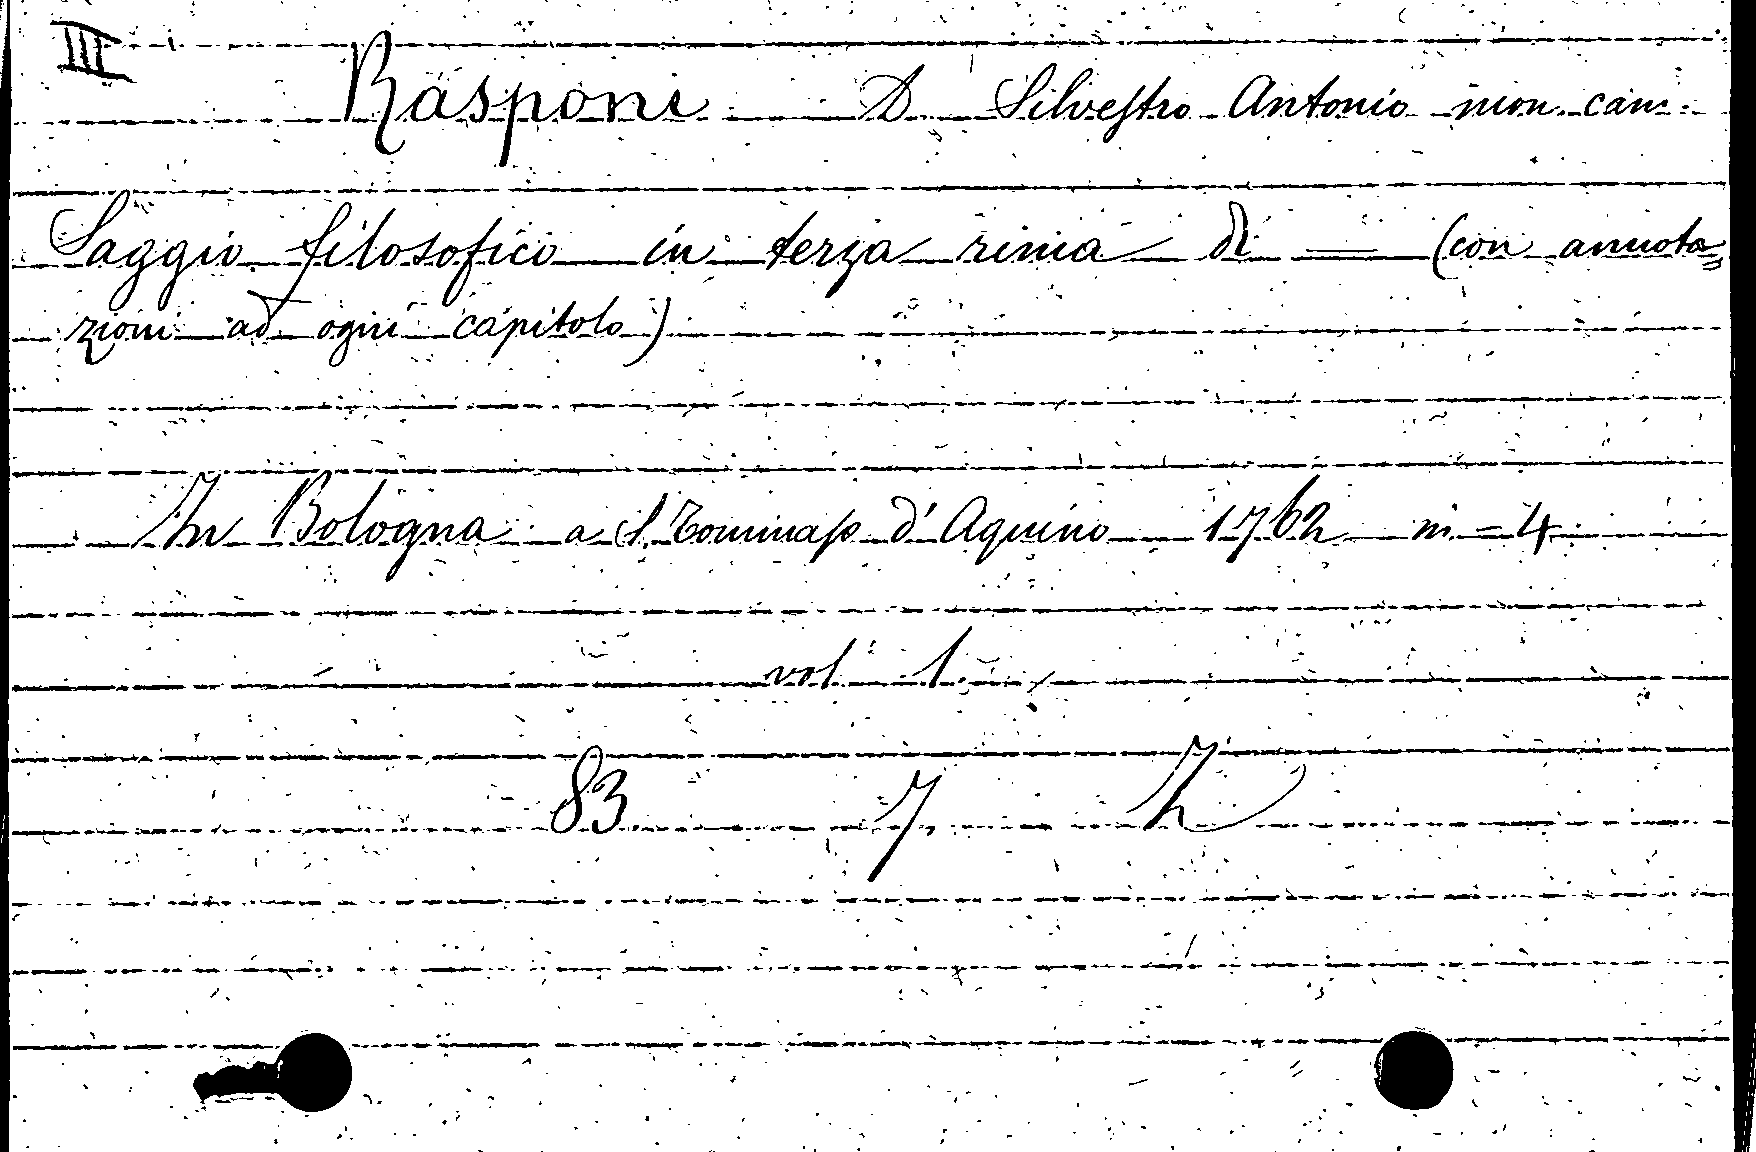 III
Rasponi D. Silvestro Antonio mon. cam.
Saggio filosofico in terza rima di = (con annota=
zioni ad ogni capitolo)
In Bologna a S. Tommaso d'Aquino 1762 in-4
vol. 1.
83 7